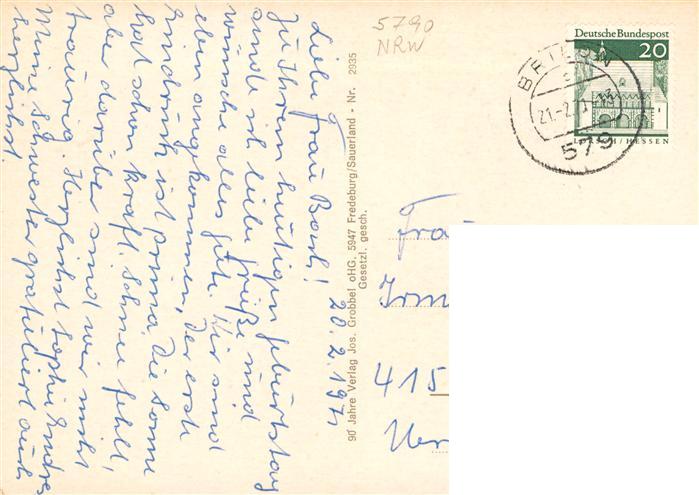 20.2.1971
Liebe Frau Bach!
Zu Ihrem heutigen Geburtstag
sende ich liebe Grüße und
wünsche alles Gute. Wir sind
eben angekommen, der erste
Eindruck ist prima. Die Sonne
hat schon Kraft. Schnee fehlt,
aber darüber sind wir nicht
traurig. Herzlichst Sophie
Meine Schwester gratuliert auch
herzlichst.
90 Jahre Verlag Jos. Grobbel oHG. 5947 Fredeburg/Sauerland - Nr. 2935
Gesetzl. gesch.
5790
NRW
Deutsche Bundespost
20
LORSCH/HESSEN
BRILON
21.-2.71
579
Frau
Irm
415